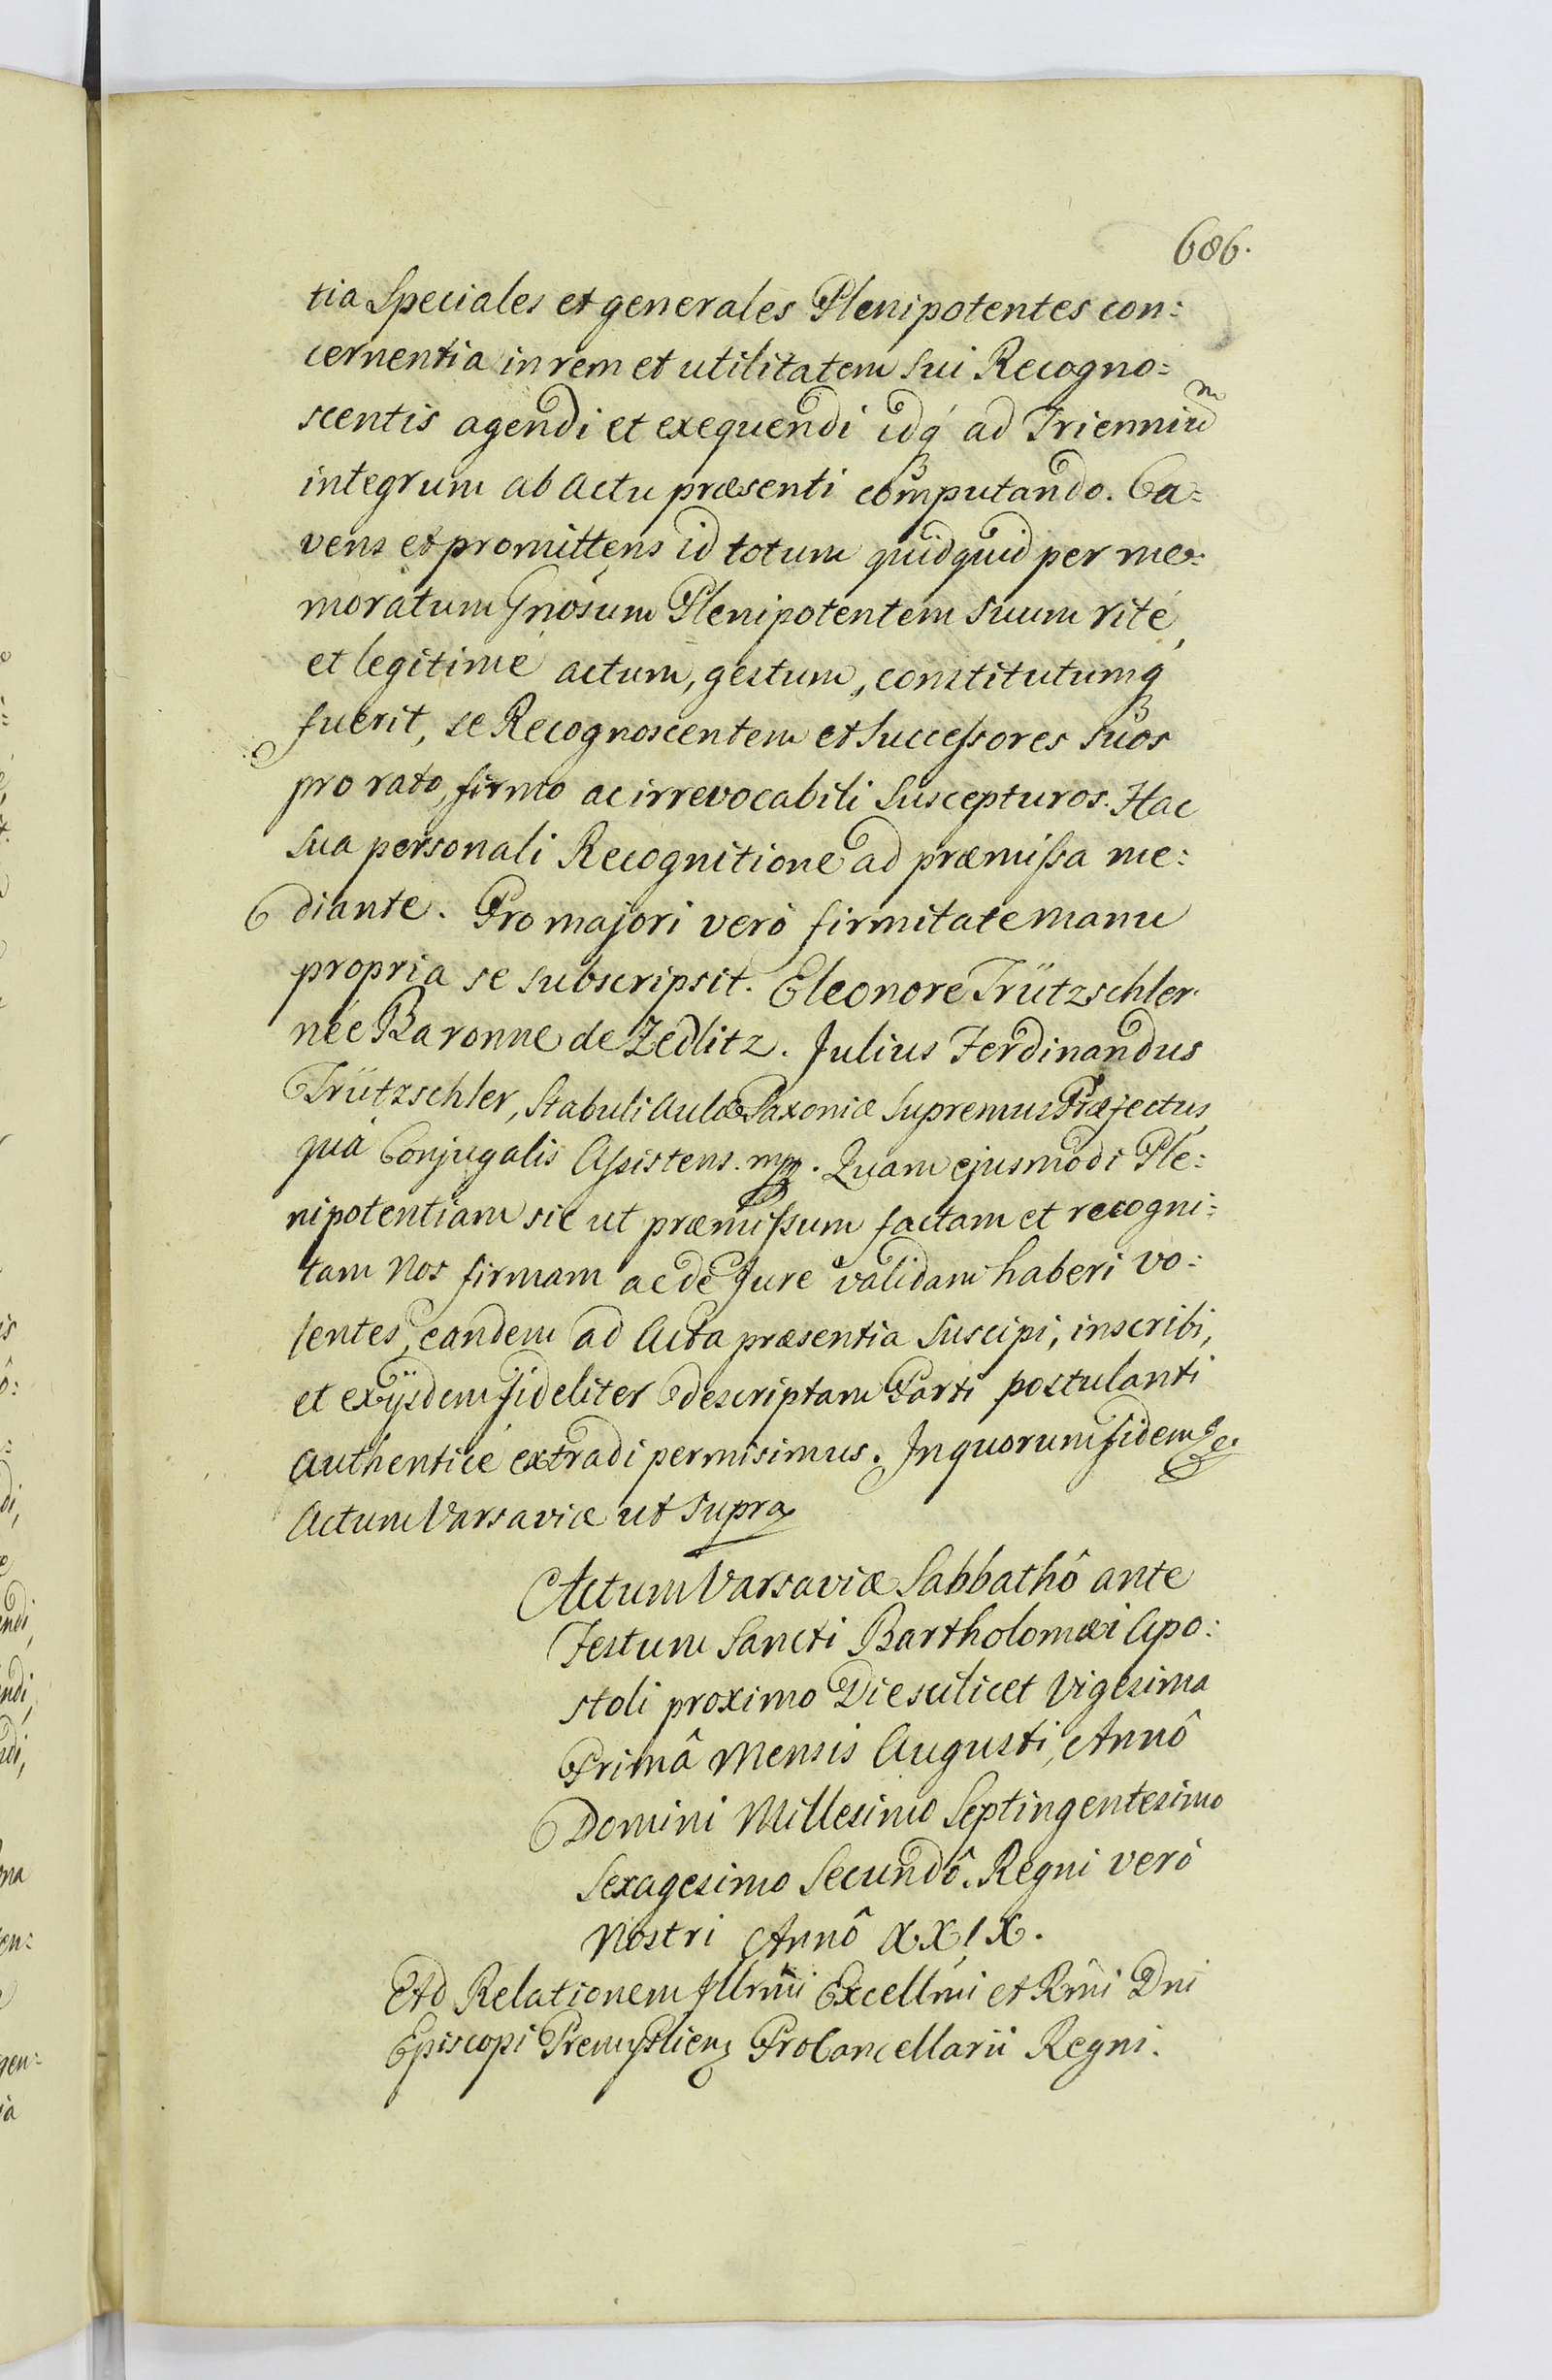 686.
tia Speciales et generales Plenipotentes con:
cernentia in rem et utilitatem sui Recogno=
scentis agendi et exequendi idq́ ad Triennium
integrum ab actu præsenti computando. Ca=
vens et promittens id totum quidquid per me:
moratum Gnosum Plenipotentem suum rité,
et legitimé actum, gestum, constitutumq́
fuerit, se Recognoscentem et Successores suos
pro rato, firmo ac irrevocabili suscepturos. Hac
sua personali Recognitione ad præmissa me:
diante. Pro majori verò firmitate manu
propria se subscripsit. Eleonore Trützschler
neé Baronne de Zedlitz. Julius Ferdinandus
Trützschler, Stabuli Aulæ Saxoniæ Supremus Præfectus,
quà Conjugalis Assistens. mp. Quam ejusmodi Ple:
nipotentiam sic ut præmissum factam et recogni:
tam Nos firmam ac de Jure validam haberi vo:
lentes, eandem ad Acta præsentia suscipi, inscribi,
et ex ijsdem fideliter descriptam Parti postulanti
authenticé extradi permisimus. In quorum fidem &c.
Actum Varsaviæ ut supra
Actum Varsaviæ Sabbathô ante
Festum Sancti Bartholomæi Apo:
stoli proximo Die scilicet Vigesima
Primâ Mensis Augusti, Annô
Domini Millesimo Septingentesimo
Sexagesimo Secundô. Regni verò
Nostri Annô XXIX.
Ad Relationem Illrmi Excellmi et Rmi Dni
Episcopi Premyslien ProCancellarii Regni.